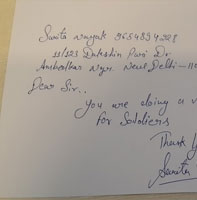 Sunita Nayak 9654894228
11/123 Dakshin Puri Dr.
Ambedkar Ngr. New Delhi - 110
Dear Sir..
You are doing a
for Soldiers
Thank
Sunita